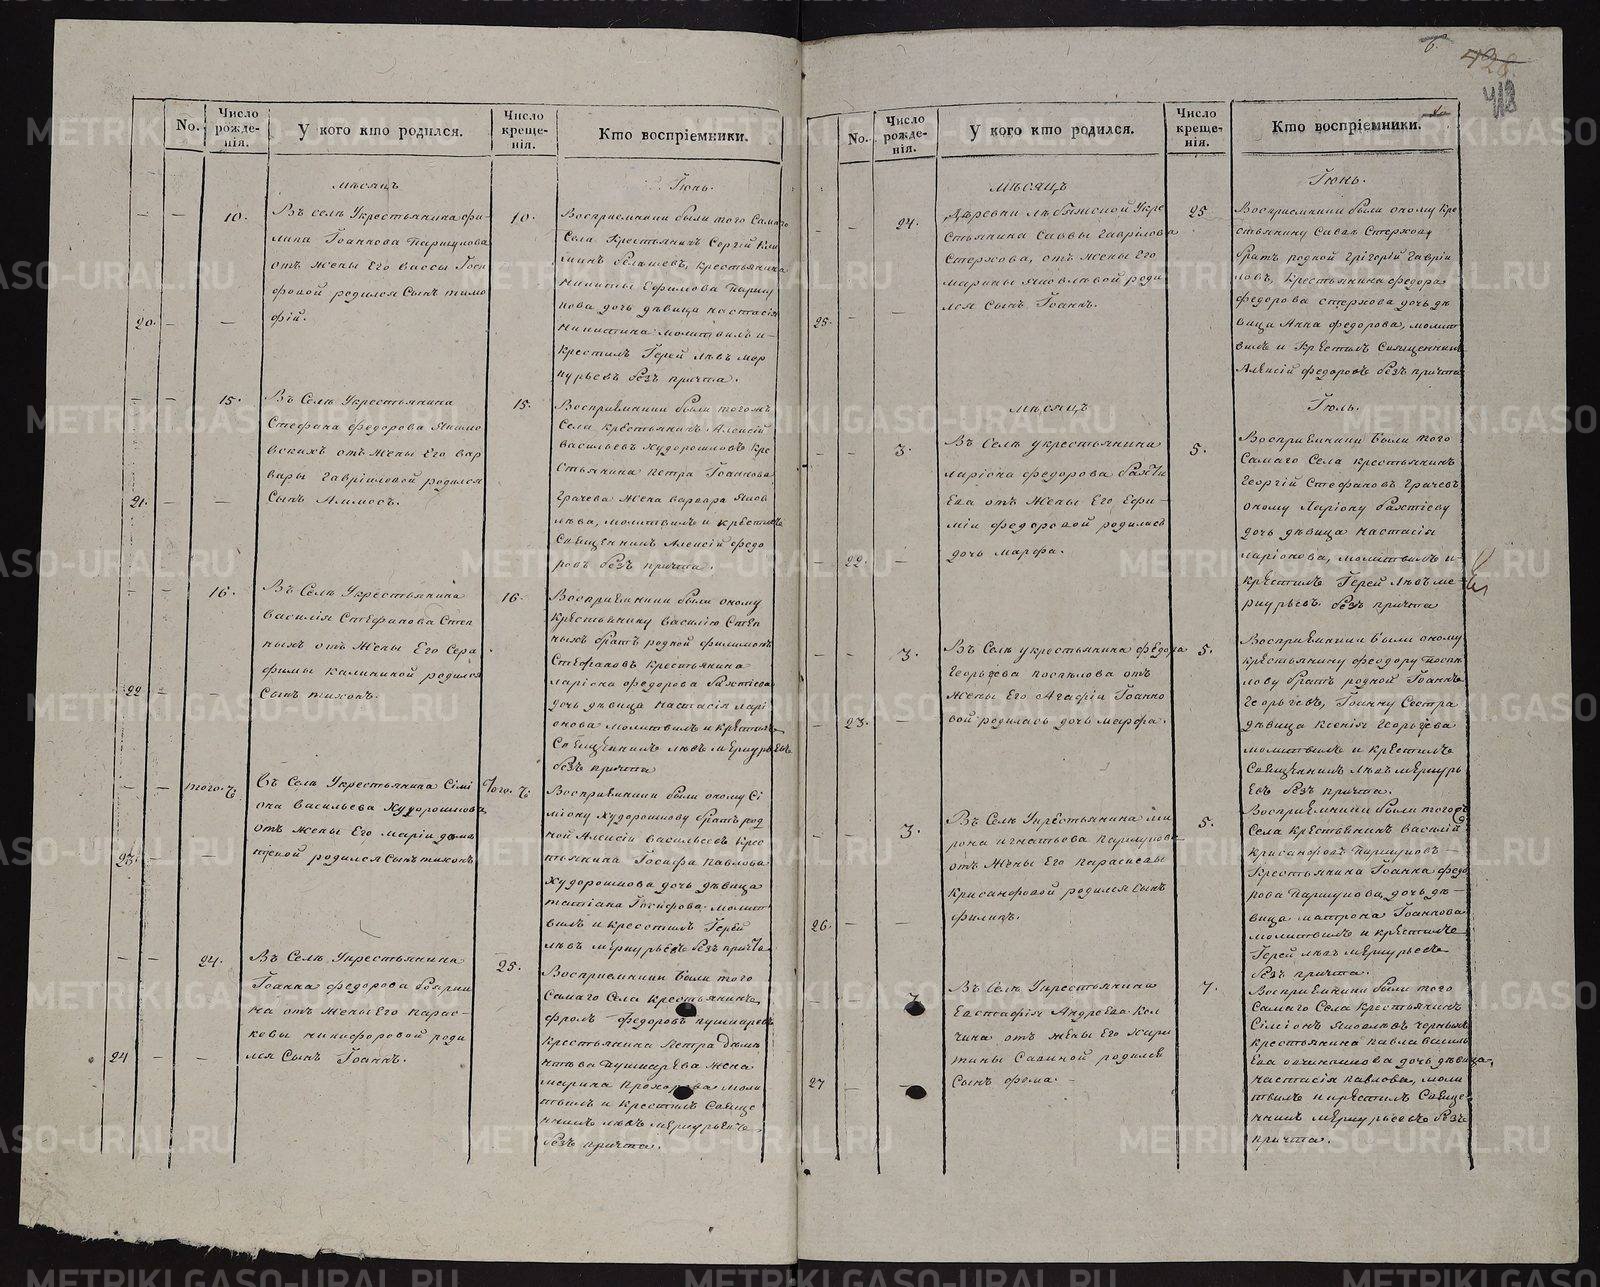 6.
428.
418
No.
Число рожде-нія.
У кого кто родился.
Число креще-нія.
Кто воспріемники.
мѣсяцъ
Іюнь.
10.
Въ селѣ Укрестьянина Фи-
липа Іоаннова Паршукова
отъ жены Его Вассы Іоси
фовой родился Сынъ тимо
фій.
20.
10.
Восприемники были того Самаго
Села Крестьянинъ Сергій Кли
минъ крестьянина
никиты Ефимова Паршу
кова дочь дѣвица настасія
никитина молитвилъ и
крестилъ Іерей Левъ мер
курьевъ безъ причта.
15.
Въ Селѣ Укрестьянина
Стефана федорова
отъ жены Его вар
вары гавріиловой родился
Сынъ
21.
15.
Восприемники были тогожъ
Села крестьянинъ Алексій
васильевъ худорошковъ кре
стьянина петра Іоаннова
грачева жена варвара Яков
лева, молитвилъ и крестилъ
Священникъ Алексій федо
ровъ безъ причта.
16.
Въ Селѣ Укрестьянина
василія Стефанова Степ
ныхъ отъ жены Его Сера
фимы калининой родился
Сынъ тихонъ.
22
16.
Восприемники были оному
крестьянину василію Степ
ныхъ братъ родной филимонъ
Стефановъ крестьянина
ларіона федорова бахтіева
дочь дѣвица настасія ларі
онова молитвилъ и крестилъ
Священникъ левъ меркурьевъ
безъ причта
того. ч.
въ Селѣ Укрестьянина Сімі
она васильева худорошкова
отъ жены Его маріи
родился Сынъ тихонъ
23.
того. ч.
Восприемники были оному Сі
міону худорошкову братъ род
ной Алексій васильевъ крес
тьянина Іосифа павлова
худорошкова дочь дѣвица
татіана Іосифова. молит
вилъ и крестилъ Іерей
левъ меркурьевъ безъ причта
24.
Въ Селѣ Укрестьянина
Іоанна федорова
на отъ жены Его парас-
ковы никифоровой роди
лся Сынъ Іоаннъ.
24
25.
Восприемники были того
Самаго Села крестьянинъ
фролъ федоровъ пушкаревъ
крестьянина Петра
Пушкарева жена
марина прохорова моли
твилъ и крестилъ Священ
никъ левъ меркурьевъ
безъ причта.
No.
Число рожде-нія.
У кого кто родился.
Число креще-нія.
Кто воспріемники.
мѣсяцъ
Іюнь.
24.
Деревни лебяжской Укре
стьянина Саввы гаврілова
Стерхова, отъ жены Его
марины Яковлевой роди
лся Сынъ Іоаннъ.
25.
25
Восприемники были оному кре
стьянину Савве Стерхову
братъ родной Григорій гаврі
ловъ, крестьянина федора
федорова стерхова дочь дѣ
вица Анна федорова, молит
вилъ и крестилъ Священникъ
Алексій федоровъ безъ причта
мѣсяцъ
Іюль.
3.
Въ Селѣ укрестьянина
ларіона федорова бахти
ева отъ жены Его Ефи-
міи федоровой родилась
дочь марфа.
22.
5.
Восприемники были того
Самаго Села крестьянинъ
георгій Стефановъ грачевъ
оному ларіону бахтіеву
дочь дѣвица настасія
ларіонова, молитвилъ и
крестилъ Іерей левъ ме-
ркурьевъ безъ причта
3.
Въ Селѣ укрестьянина федора
георьгева поспелова отъ
жены Его Агафіи Іоанно
вой родилась дочь марфа.
23.
5.
Восприемники были оному
крестьянину феодору поспе
лову братъ родной Іоаннъ
георьгевъ, Іоанну Сестра
дѣвица ксенія георьгева
молитвилъ и крестилъ
Священникъ левъ меркурь
евъ безъ причта.
3.
Въ Селѣ Укрестьянина ми
рона игнатьева паршукова
отъ жены Его парасковы
крисанфовой родился сынъ
филипъ.
26.
5.
Восприемники были тогожъ
Села крестьянинъ василій
крисанфовъ паршуковъ
крестьянина Іоанна федо
рова паршукова, дочь дѣ-
вица матрона Іоаннова
молитвилъ и крестилъ
Іерей левъ меркурьевъ
безъ причта.
7
Въ Селѣ Укрестьянина
Евстафія Андреева кол
чина отъ жены Его хари
тины Савиной родился
Сынъ фома.
27
7.
Восприемники были того
Самаго Села крестьянинъ
Сіміонъ Яковлевъ черныхъ
крестьянина павла василь
ева овчинникова дочь дѣвица,
настасія павлова, моли
твилъ и крестилъ Священ
никъ меркурьевъ безъ
причта.
METRIKI.GASO-URAL.RU